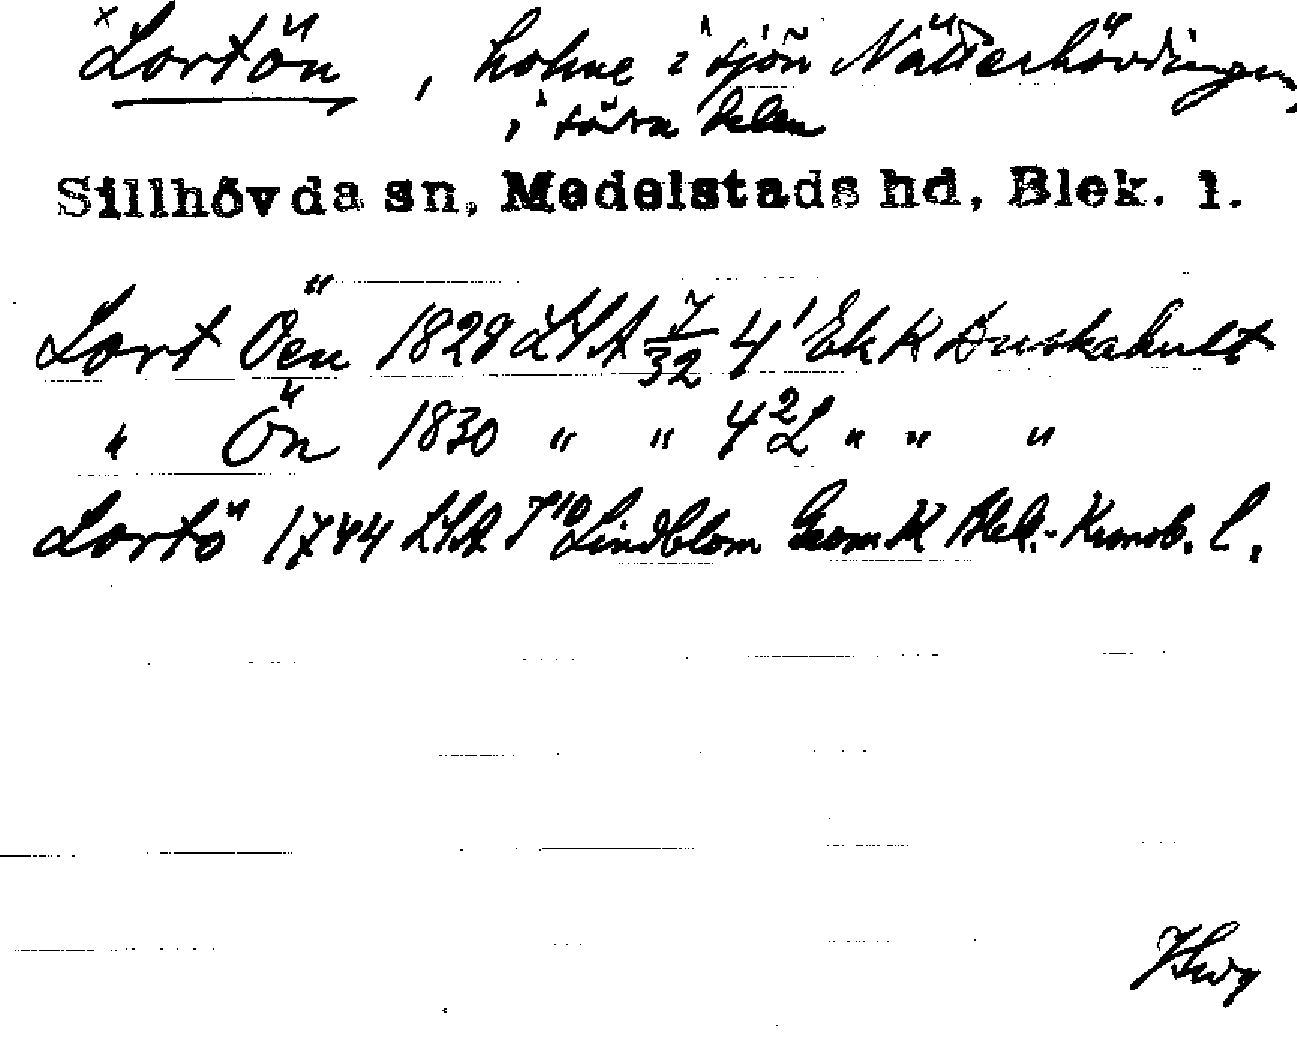 x Lortön, holme i sjön Nätterhövdingen,
i södra delen
Sillhövda sn, Medelstads hd, Blek. l.
Lort Öen 1829 LSA 7/32 4¹ Ek K Duskahult
" Ön 1830 " " 4² L " " "
Lortö 1744 LSA J¹⁰ Lindblom Geom. K Blek.-Kronob. l.